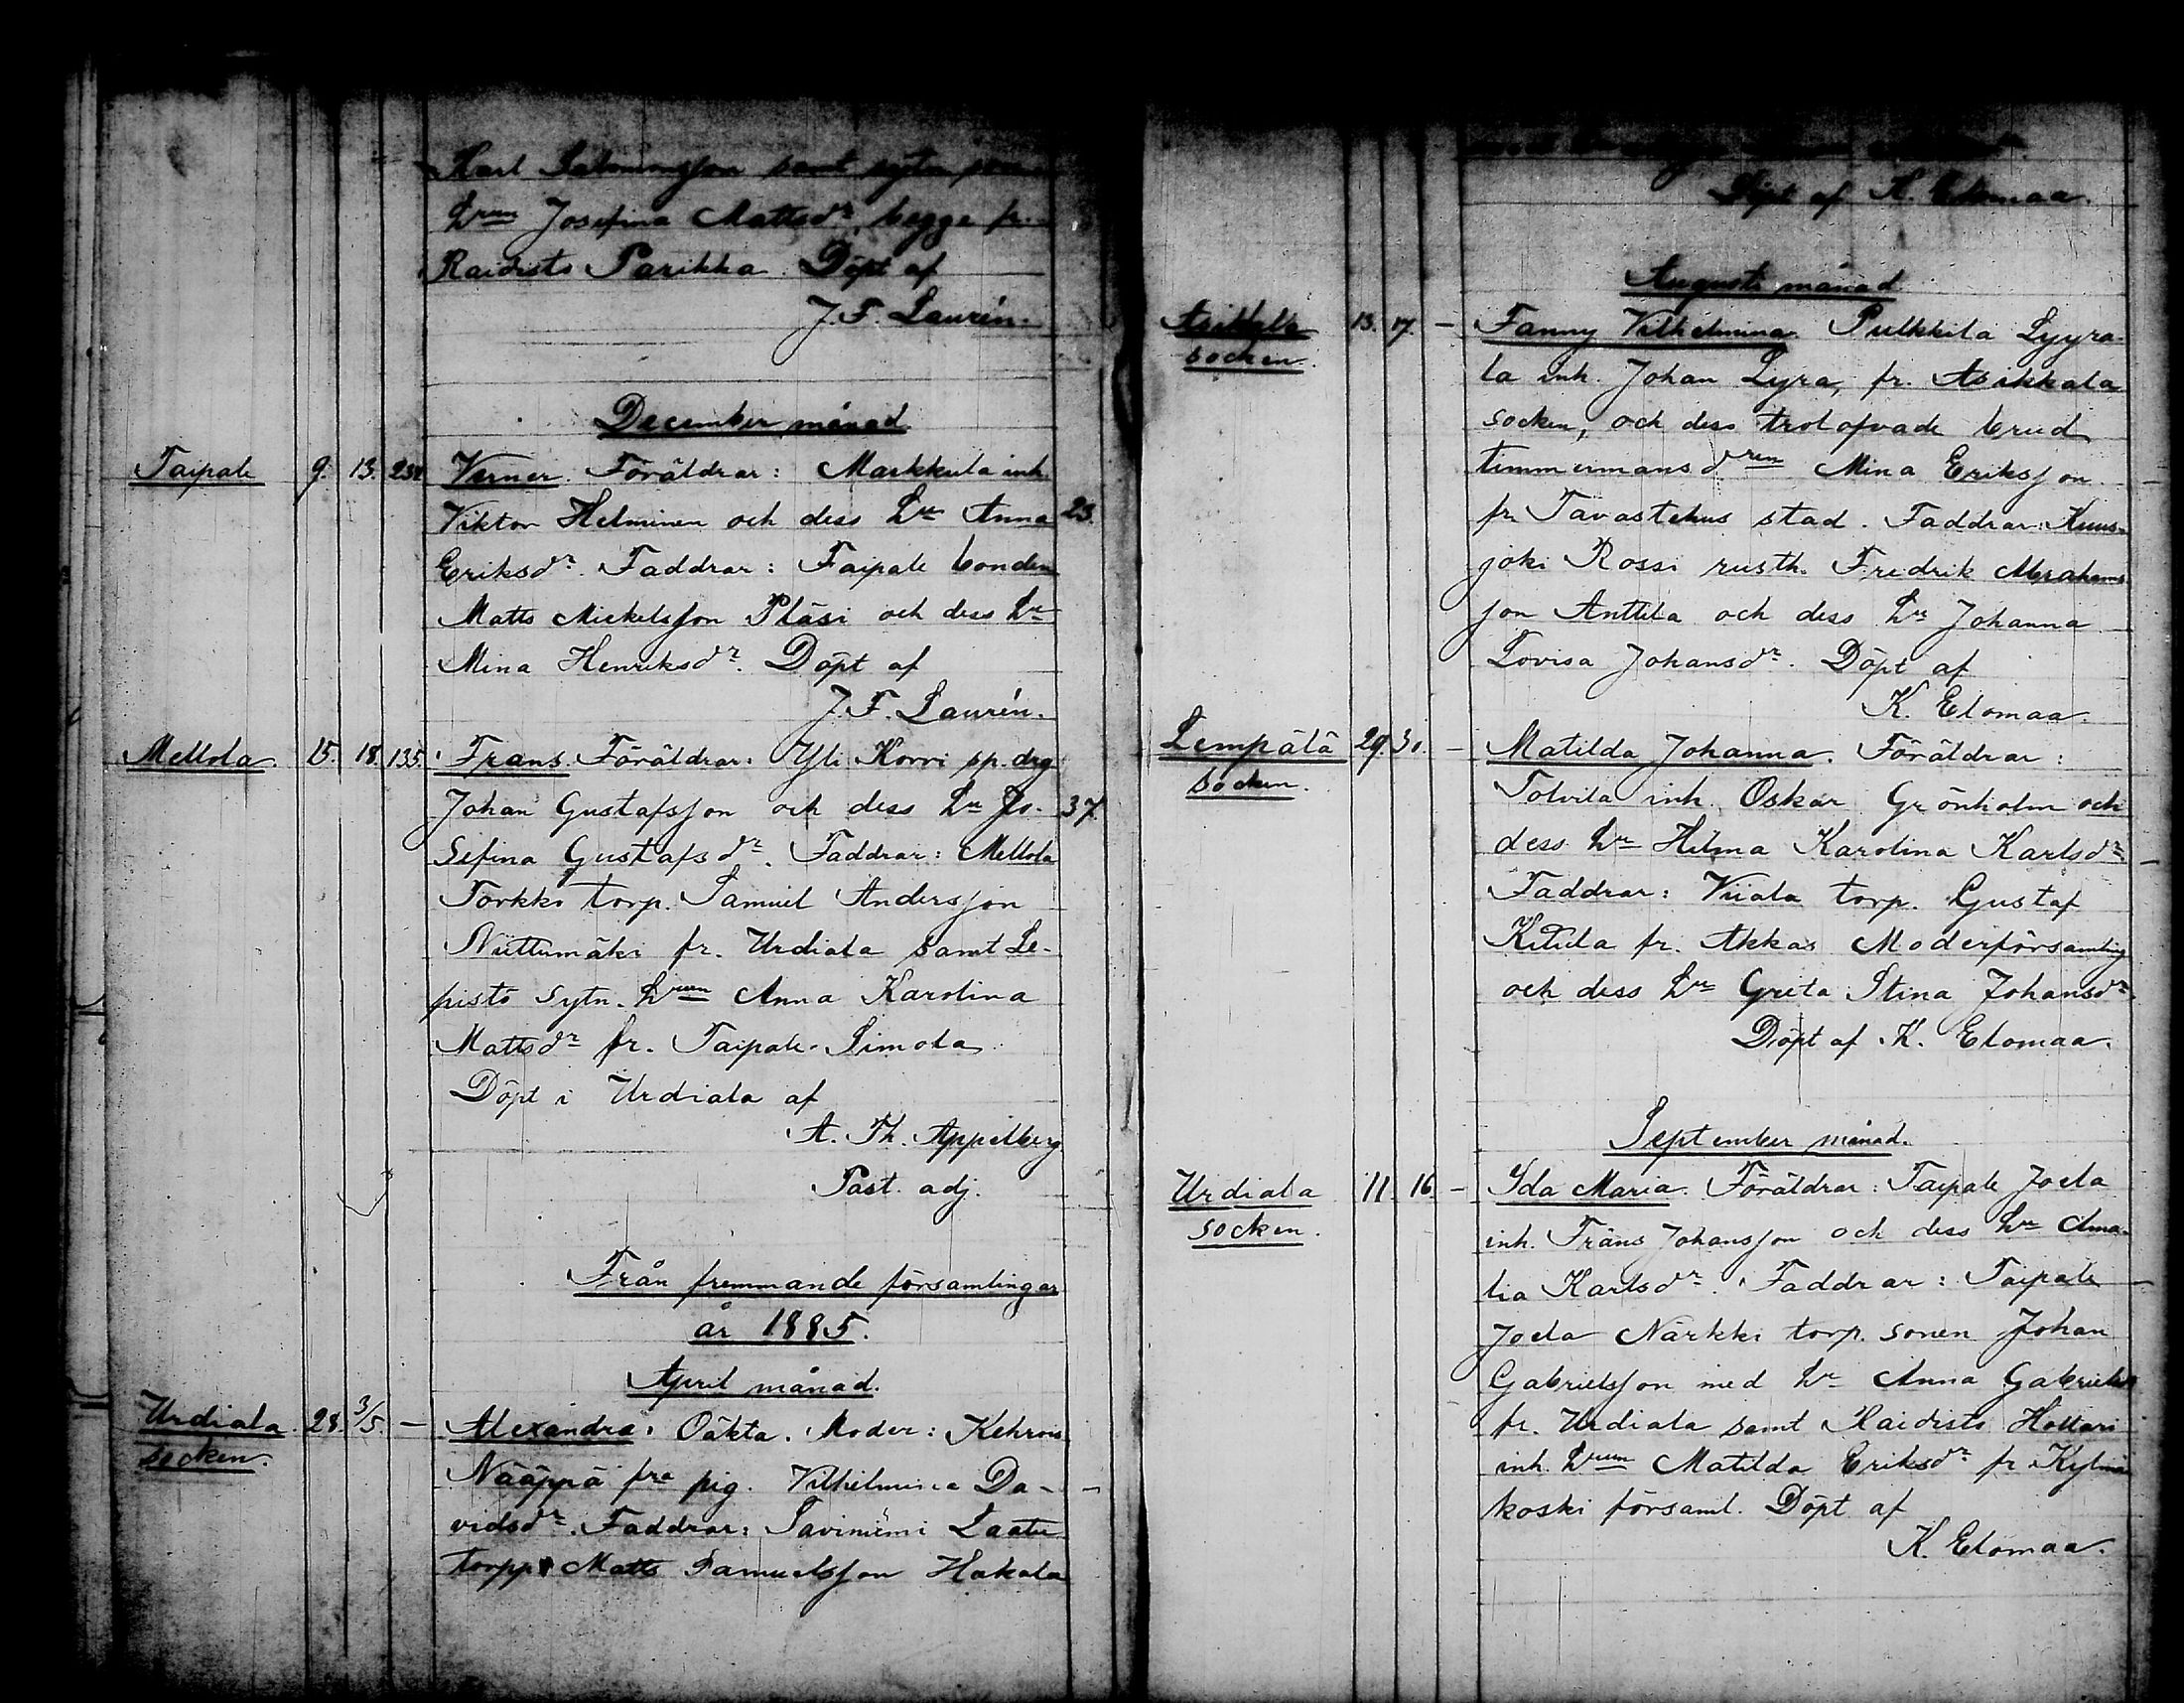 Karl Salomonsson samt sytn
Hrun Josefina Mattsdr, begge fr.
Raidisto Parikka Döpt af
J. F. Laurén.
December månad
Taipale 9. 13. 231 Verner. Föräldrar: Markkula inh.
Viktor Helminen och dess Hu Anna 23.
Eriksdr. Faddrar: Taipale bonden
Matts Mickelsson Pläsi och dess Hu
Mina Henriksdr. Döpt af
J. F. Laurén.
Mellola. 15. 18. 135. Frans. Föräldrar: Yli Korvi sp. drg
Johan Gustafsson och dess Hu Jo- 37
sefina Gustafsdr. Faddrar: Mellola
Torkko torp. Samuel Andersson
Niittumäki fr. Urdiala samt Le-
pistö sytn. Hrun Anna Karolina
Mattsdr fr. Taipale-Simola
Döpt i Urdiala af
A. Th. Appelberg
Past. adj.
Från fremmande församlingar
år 1885.
April månad.
Urdiala 28. 3/5. — Alexandra. Oäkta. Moder: Kehrois
socken.
Nääppä fra pig. Vilhelmina Da- -
vidsdr. Faddrar: Saviniemi Laatu
torpp Matts Samuelsson Hakala
Döpt af K. Elomaa.
Augusti månad
Asikkala 13. 17. — Fanny Vilhelmina. Pulkkila Lyyra-
socken.
la inh. Johan Lyra, fr. Asikkala
socken, och dess trolofvade brud
timmermansdren Mina Eriksson -
fr. Tavastehus stad. Faddrar: Kuus-
joki Rossi rusth. Fredrik Abrahams
son Anttila och dess Hu Johanna
Lovisa Johansdr. Döpt af
K. Elomaa.
Lempälä 29. 30. — Matilda Johanna. Föräldrar:
socken.
Tolvila inh. Oskar Grönholm och
dess Hu Hilma Karolina Karlsdr. -
Faddrar: Viiala torp. Gustaf
Kitula fr. Akkas Moderförsamling
och dess Hu Greta Stina Johansdr.
Döpt af K. Elomaa.
September månad.
Urdiala 11. 16. — Ida Maria. Föräldrar: Taipale Joela
socken.
inh. Frans Johansson och dess Hu Ama-
lia Karlsdr. Faddrar: Taipale -
Joela Närkki torp. sonen Johan
Gabrielsson med Hu Anna Gabrielsd
fr. Urdiala samt Raidisto Hollari
inh. Hrun Matilda Eriksdr fr Kylmä
koski församl. Döpt af
K. Elomaa.